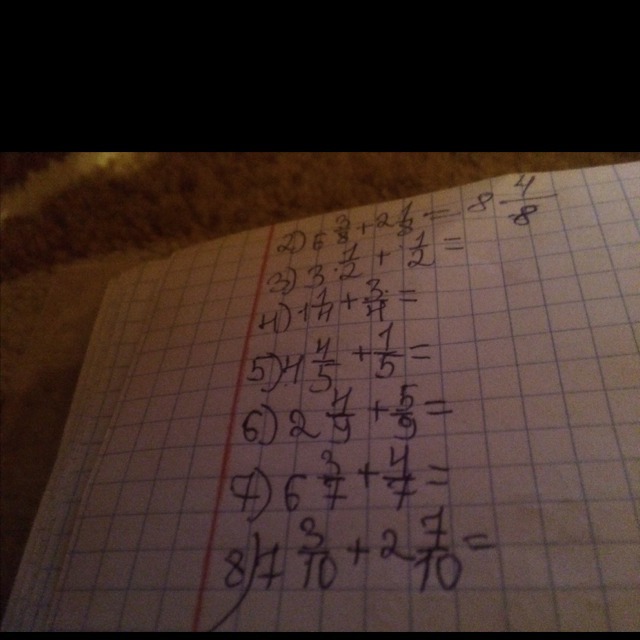 2) 6 3/8 + 2 1/8 = 8 4/8
3) 3 1/2 + 1/2 =
4) 1 1/4 + 3/4 =
5) 4 1/5 + 1/5 =
6) 2 4/9 + 5/9 =
7) 6 3/7 + 4/7 =
8) 7 3/10 + 2 7/10 =